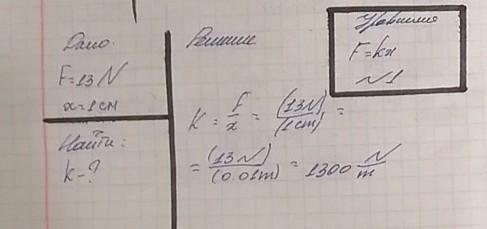 Дано:
F=13 N
x=1 см
Найти:
k-?
Решение
K = F/x = (13N)/(1cm) =
= (13N)/(0.01m) = 1300 N/m
F=kx
~1